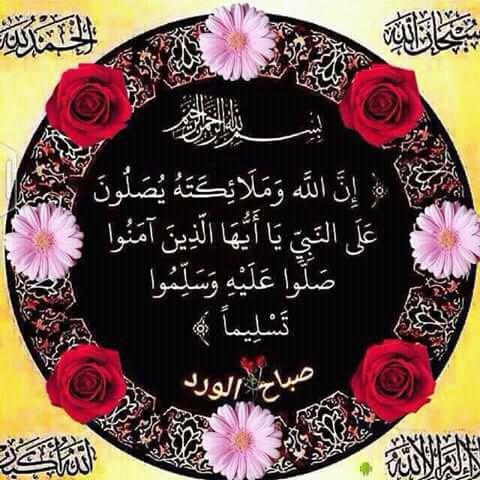 سبحان الله
الحمد لله
بسم الله الرحمن الرحيم
﴿ إِنَّ اللَّه وَمَلَائِكَتَهُ يُصَلُّونَ
عَلَى النَبِيِّ يَا أَيُّهَا الَّذِينَ آمَنُوا
صَلُّوا عَلَيْهِ وَسَلِّمُوا
تَسْلِيماً ﴾
صباح الورد
لا إله إلا الله
الله أكبر